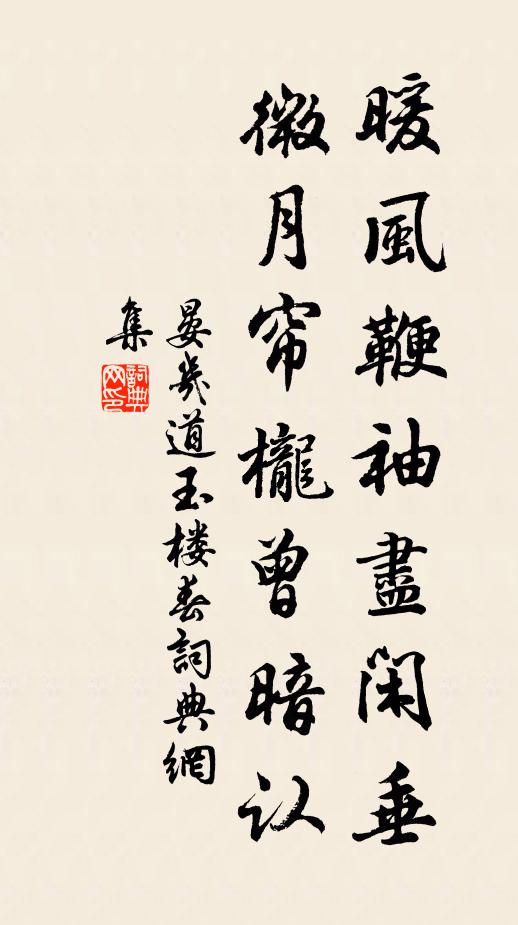 暖風鞭袖盡閑垂
微月帘櫳曾暗认
晏幾道玉楼春詞典網
集
詞典网印